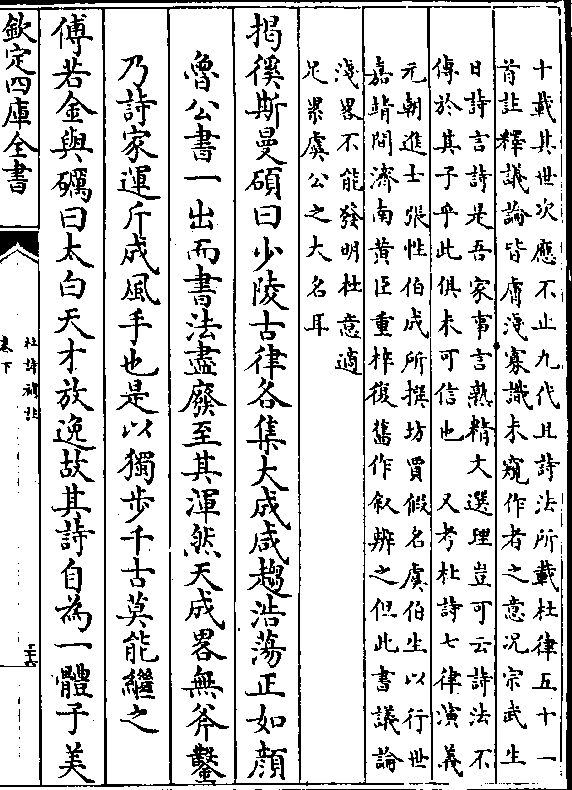 十載其世次應不止九代且詩法所載杜律五十一
首註釋議論皆膚淺寡識未窺作者之意況宗武生
日詩言詩是吾家事言熟精文選理豈可云詩法不
傳於其子乎此俱未可信也 又考杜詩七律演義
元朝進士張性伯成所撰坊賈假名虞伯生以行世
嘉靖間濟南黄臣重梓復舊作叙辨之但此書議論
淺畧不能發明杜意適
足累虞公之大名耳
揭徯斯曼碩曰少陵古律各集大成咸趨浩蕩正如顔
魯公書一出而書法盡廢至其渾然天成畧無斧鑿
乃詩家運斤成風手也是以獨步千古莫能繼之
傅若金與礪曰太白天才放逸故其詩自為一體子美
欽定四庫全書
杜詩補註
卷下
三十六